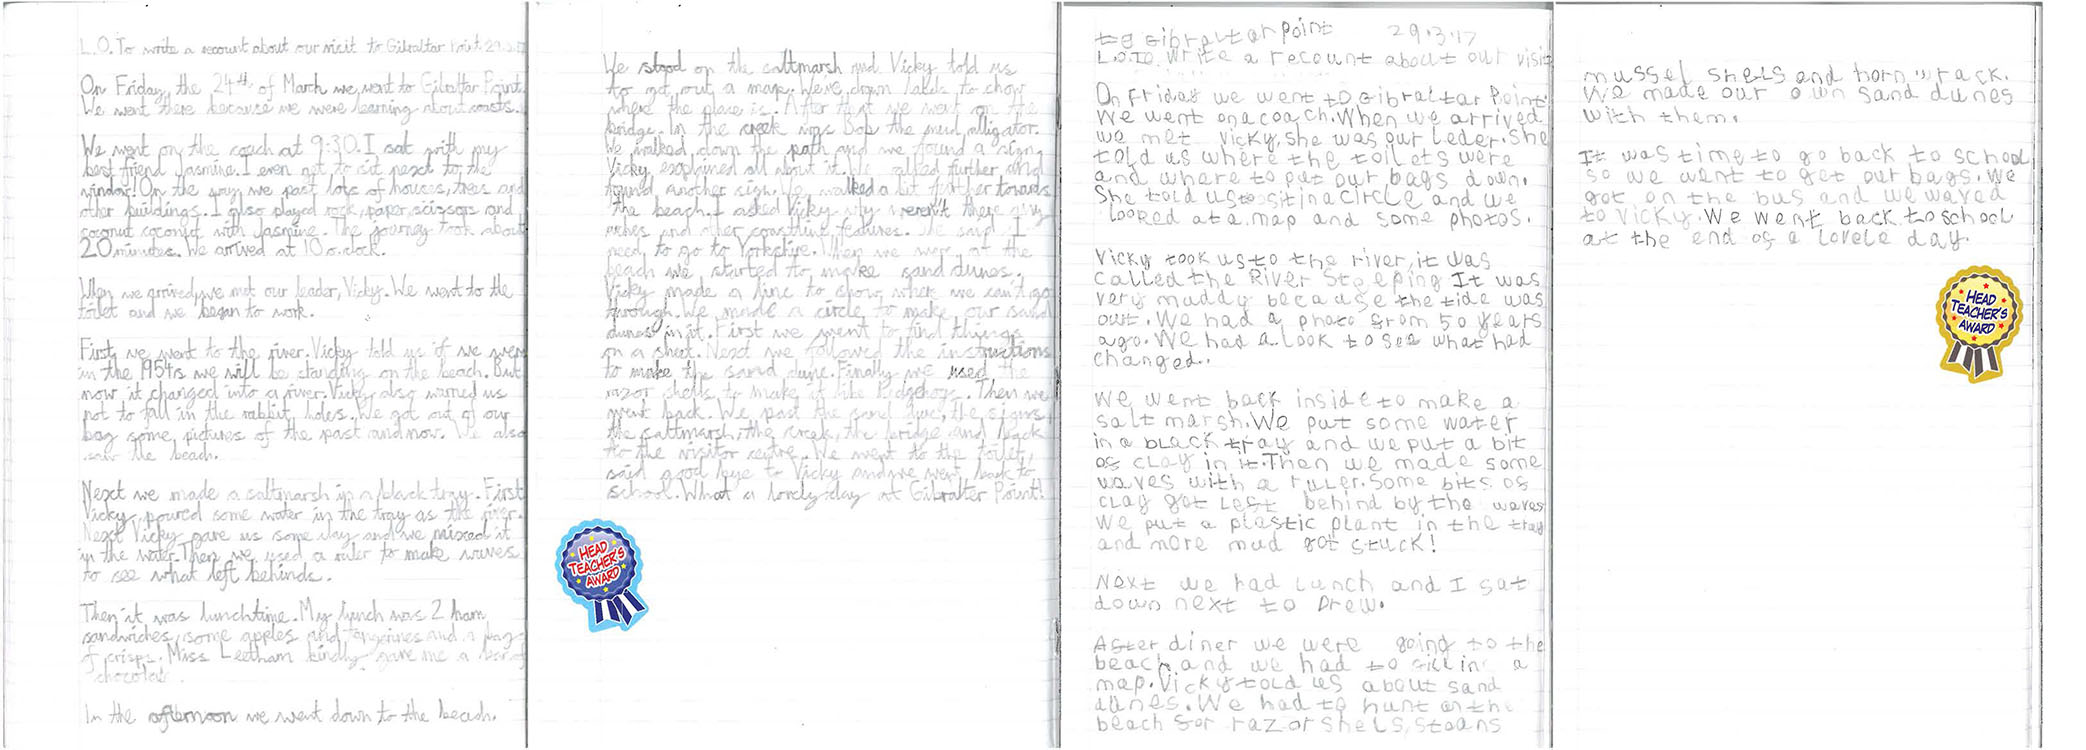 L.O.To write a recount about our visit to Gibraltar Point. 29.3.17
On Friday the 24th of March we went to Gibraltar Point.
We went there because we were learning about coasts.
We went on the coach at 9:30. I sat with my
best friend Jasmine. I even got to sit next to the
window! On the way we past lots of houses, trees and
other buildings. I also played rock, paper, scissors and
coconut coconut with Jasmine. The journey took about
20 minutes. We arrived at 10 o.clock.
When we arrived, we met our leader, Vicky. We went to the
toilet and we began to work.
First we went to the river. Vicky told us if we were
in the 1954s we will be standing on the beach. But
now it changed into a river. Vicky also warned us
not to fall in the rabbit holes. We got out of our
bag some pictures of the past and now. We also
saw the beach.
Next we made a saltmarsh in a black tray. First
Vicky poured some water in the tray as the river.
Next Vicky gave us some clay and we mixed it
in the water. Then we used a ruler to make waves
to see what left behinds.
Then it was lunchtime. My lunch was 2 ham
sandwiches, some apples and tangerines and a bag
of crisps. Miss Leetham kindly gave me a bar of
chocolate.
In the afternoon we went down to the beach.
We stood on the saltmarsh and Vicky told us
to get out a map. We've drown labels to show
where the place is. After that we went on the
bridge. In the creek was Bob the mud alligator.
We walked down the path and we found a sign.
Vicky explained all about it. We walked further and
found another sign. We walked a bit further towards
the beach. I asked Vicky why weren't there any
arches and other coastline features. She said I
need to go to Yorkshire. When we were at the
beach we started to make sand dunes.
Vicky made a line to show where we can't go
through. We made a circle to make our sand
dunes in it. First we went to find things
on a sheet. Next we followed the instructions
to make the sand dune. Finally we used the
razor shells to make it like hedgehogs. Then we
went back. We past the sand dune, the signs,
the saltmarsh, the creek, the bridge and back
to the visitor centre. We went to the toilet,
said good bye to Vicky and we went back to
school. What a lovely day at Gibralter Point!
HEAD
TEACHER'S
AWARD
to Gibraltar Point 29.3.17
L.O.To write a recount about our visit
On Friday we went to Gibraltar Point.
We went on a coach. When we arrived
we met Vicky, she was our leder. She
told us where the toilets were
and where to put our bags down.
She told us to sit in a circle and we
looked at a map and some photos.
Vicky took us to the river, it was
called the River Steeping It was
very muddy because the tide was
out. We had a photo from 50 years
ago. We had a look to see what had
changed.
We went back inside to make a
salt marsh. We put some water
in a black tray and we put a bit
of clay in it. Then we made some
waves with a ruler. Some bits of
clay got left behind by the waves
We put a plastic plant in the tray
and more mud got stuck!
Next we had lunch and I sat
down next to Drew.
After diner we were going to the
beach and we had to fill in a
map. Vicky told us about sand
dunes. We had to hunt on the
beach for razor shels, stoans
mussel shels and horn wrack.
We made our own sand dunes
with them.
It was time to go back to school
so we went to get our bags. We
got on the bus and we waved
to Vicky. We went back to school
at the end of a lovele day.
HEAD
TEACHER'S
AWARD